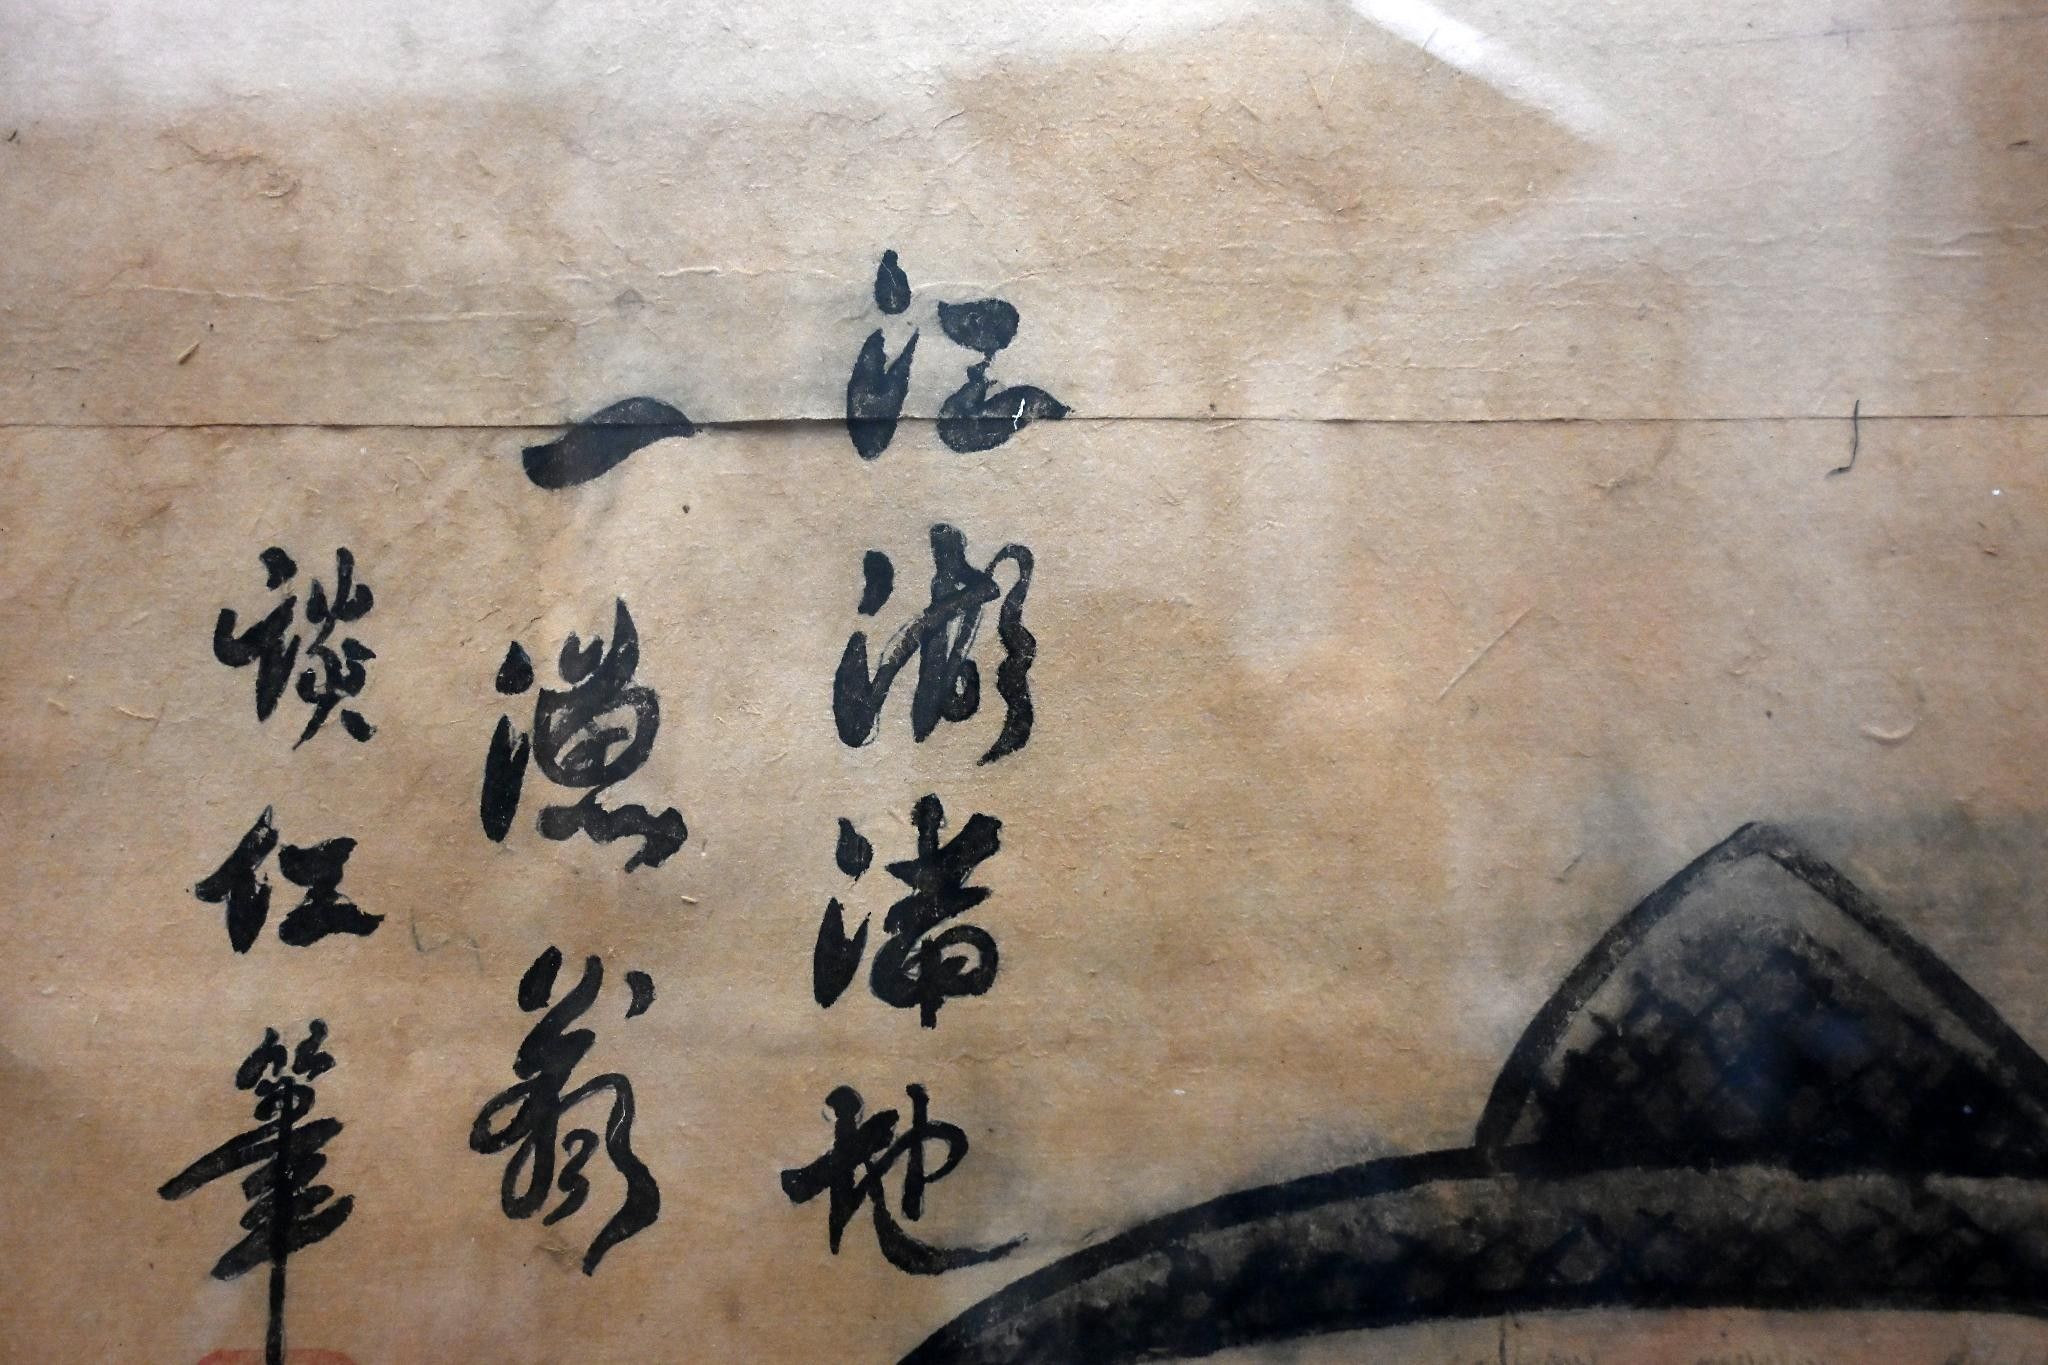 江湖滿地
一漁翁
謨仁筆